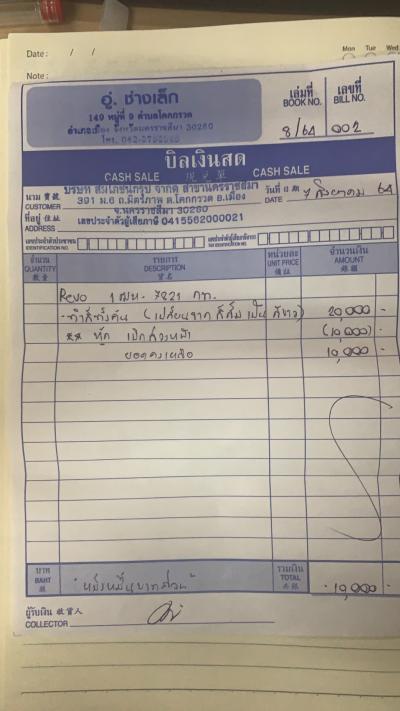 Date : / /
Mon Tue Wed
Note :
อู่. ช่างเล็ก
149 หมู่ที่ 9 ตำบลโคกกรวด
อำเภอเมือง จังหวัดนครราชสีมา 30280
โทร.
เล่มที่ เลขที่
BOOK NO. BILL NO.
8/64 002
บิลเงินสด
CASH SALE 現兌單 CASH SALE
นาม 寶號 บริษัท สาขานครราชสีมา
CUSTOMER 391 ม.6 ถ.มิตรภาพ ต.โคกกรวด อ.เมือง
วันที่
DATE 7 สิงหาคม 64
ที่อยู่ 住址 จ.นครราชสีมา 30280
ADDRESS เลขประจำตัวผู้เสียภาษี 0415562000021
IDENTIFICATION NO.
จำนวน รายการ หน่วยละ จำนวนเงิน
QUANTITY DESCRIPTION UNIT PRICE AMOUNT
數量 貨名 價銀 銀額
Revo 1ฒห- 7821 กท.
- ทำสีทั้งคัน (เปลี่ยนจาก สีส้ม เป็น สีขาว) 20,000 -
** หัก เบิกล่วงหน้า (10,000) -
ยอดคงเหลือ 10,000 -
บาท รวมเงิน
BAHT TOTAL
"หนึ่งหมื่นบาทถ้วน" 10,000 -
ผู้รับเงิน 收貨人
COLLECTOR